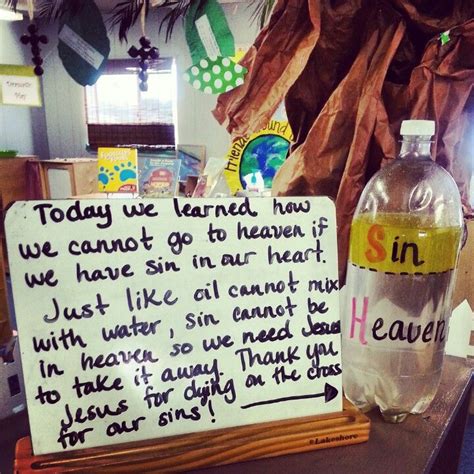 Today we learned how
we cannot go to heaven if
we have sin in our heart.
Just like oil cannot mix
with water, sin cannot be
in heaven so we need Jesus
to take it away. Thank you
Jesus for dying on the cross
for our sins!
Lakeshore
Sin
Heaven